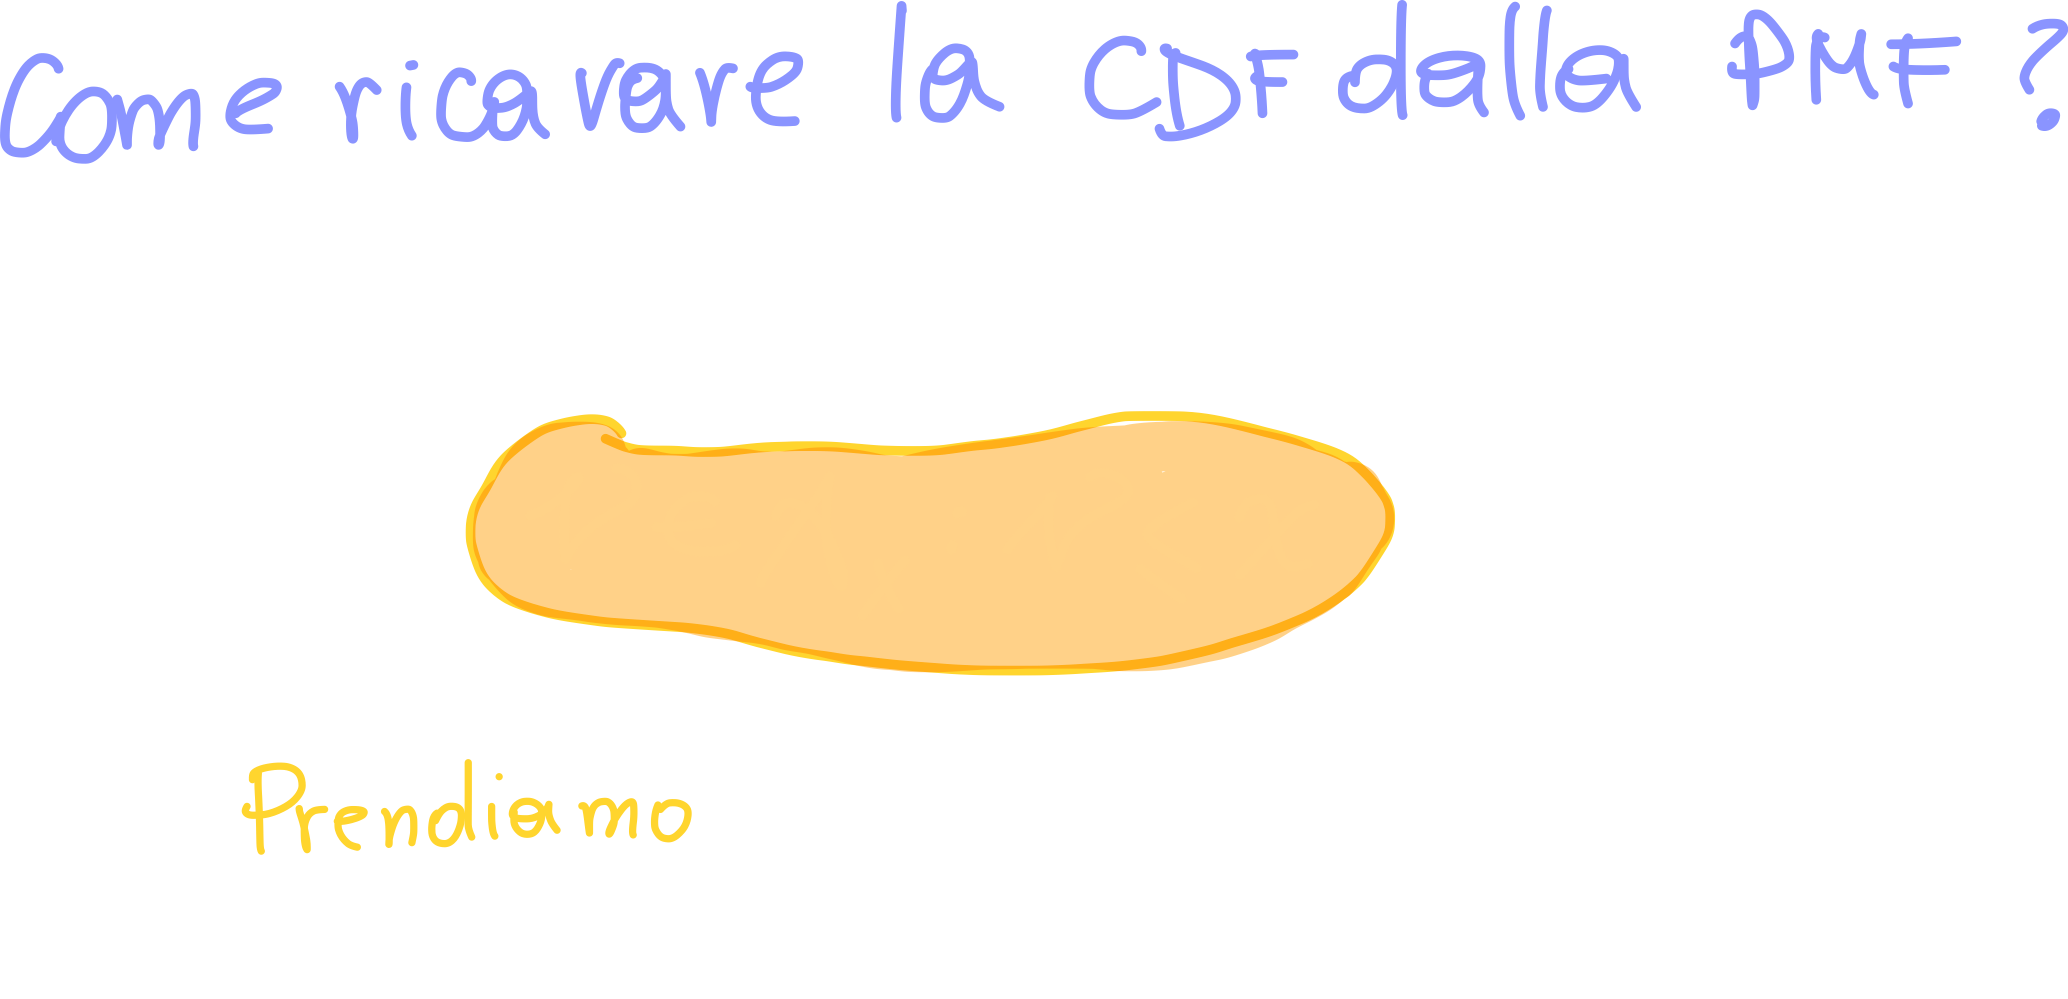 Come ricavare la CDF dalla PMF ?
Prendiamo